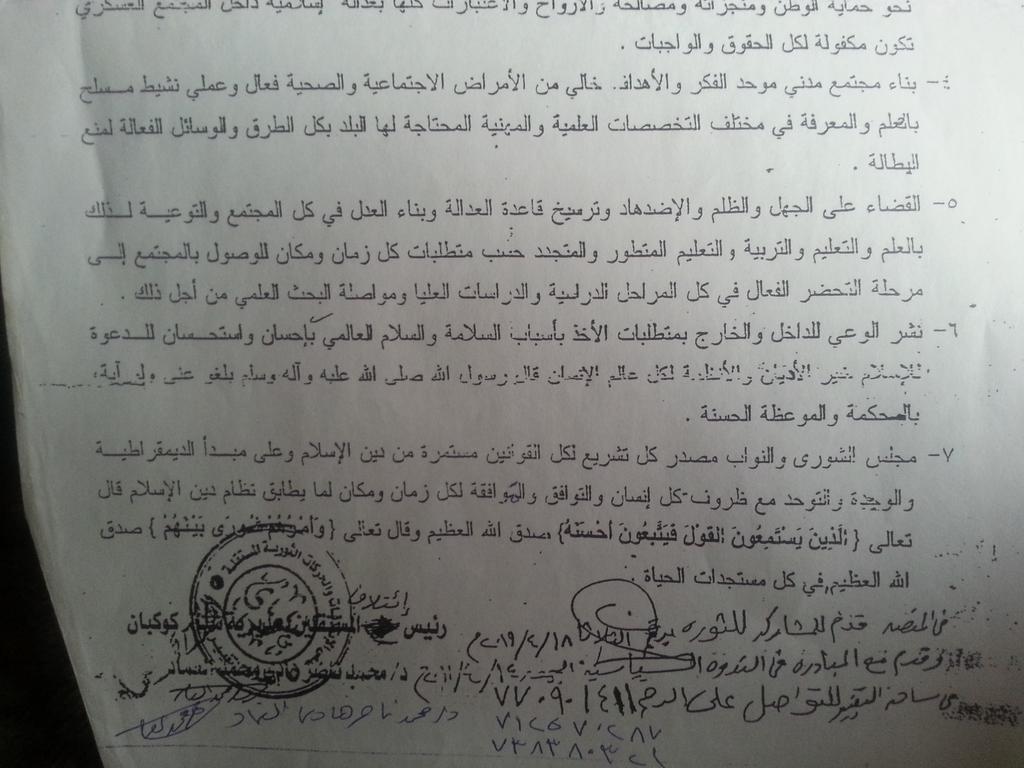 نحو حماية الوطن ومنجزاته ومصالحه والأرواح والاعتبارات كلها بعدالة إسلامية داخل المجتمع العسكري
تكون مكفولة لكل الحقوق والواجبات .
٤- بناء مجتمع مدني موحد الفكر والأهداف. خالي من الأمراض الاجتماعية والصحية فعال وعملي نشيط مسلح
بالعلم والمعرفة في مختلف التخصصات العلمية والمهنية المحتاجة لها البلد بكل الطرق والوسائل الفعالة لمنع
البطالة .
٥- القضاء على الجهل والظلم والإضدهاد وترسيخ قاعدة العدالة وبناء العدل في كل المجتمع والتوعية لذلك
بالعلم والتعليم والتربية والتعليم المتطور والمتجدد حسب متطلبات كل زمان ومكان للوصول بالمجتمع إلى
مرحلة التحضر الفعال في كل المراحل الدراسية والدراسات العليا ومواصلة البحث العلمي من أجل ذلك .
٦- نشر الوعي للداخل والخارج بمتطلبات الأخذ بأسباب السلامة والسلام العالمي بإحسان واستحسان للدعوة
للإسلام خير الأديان والأنظمة لكل عالم الإنسان قال رسول الله صلى الله عليه وآله وسلم بلغو عني ولو آية،
بالحكمة والموعظة الحسنة .
٧- مجلس الشورى والنواب مصدر كل تشريع لكل القوانين مستمرة من دين الإسلام وعلى مبدأ الديمقراطية
والوحدة والتوحد مع ظروف كل إنسان والتوافق والموافقة لكل زمان ومكان لما يطابق نظام دين الإسلام قال
تعالى {الَّذِينَ يَسْتَمِعُونَ الْقَوْلَ فَيَتَّبِعُونَ أَحْسَنَهُ} صدق الله العظيم وقال تعالى {وَأَمْرُهُمْ شُورَى بَيْنَهُمْ } صدق
الله العظيم في كل مستجدات الحياة .
والحركات الثورية المستقلة
إئتلاف
رئيس المستقلين كوكبان
د/ محمد ناصر
د/ محمد ناصر هادي
قدم للمشاركه للثوره يوم الثلاثاء
وقدم مع المبادره في الندوة
للتواصل على الرقم ٧٧٠٩٠١٤١١